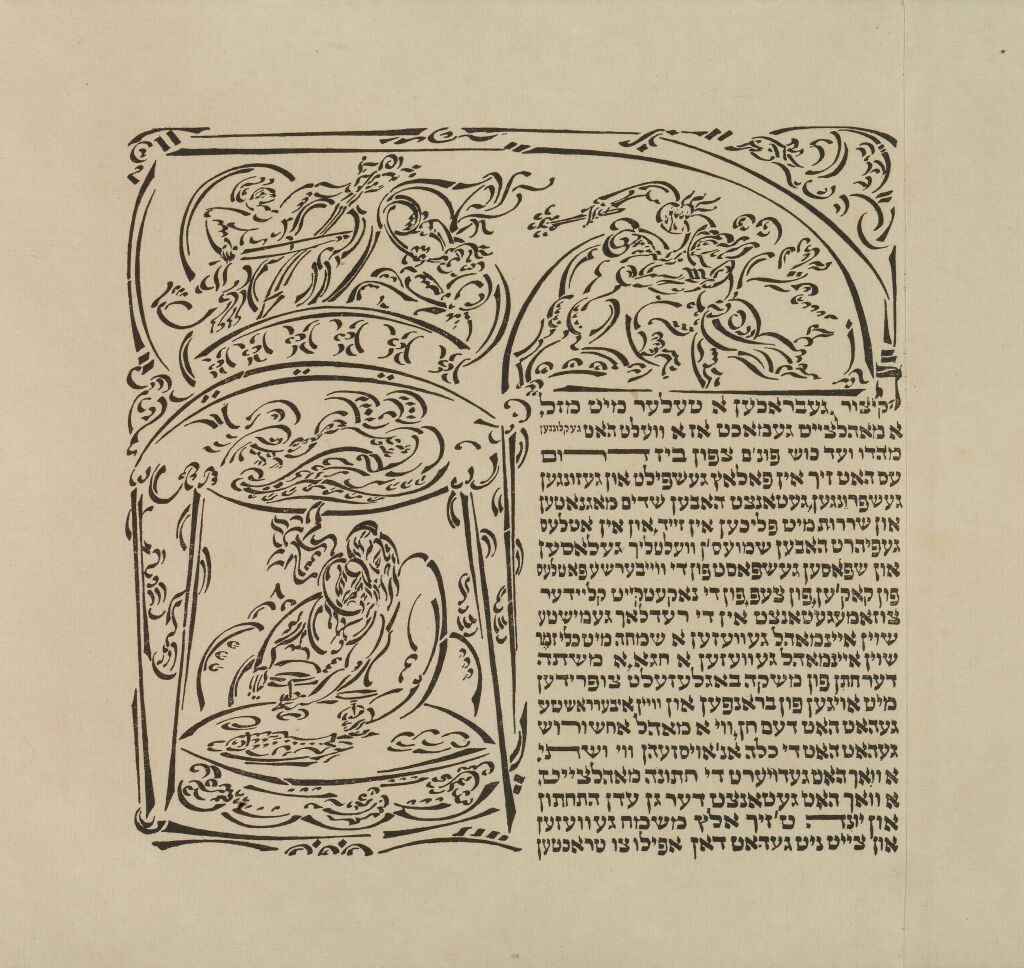 קיצור, געבראכען א טעלער מיט מזל,
א מאהלצייט געמאכט אז א וועלט האט געקלונגען
מהדו ועד כוש פונ׳ם צפון ביז דרום
עס האט זיך אין פאלאץ געשפילט און געזונגען
געשפרונגען, געטאנצט האבען שדים מאגנאטען
און שררות מיט פליכען אין זייד, און אין אטלעס
געפיהרט האבען שמועס׳ן וועלטליך געלאסען
און שפאסען געשפאסט פון די ווייבערשע פאטלעס
פון קאק׳ען, פון צעפ, פון די נאקעטקייט קליידער
צוזאמעגעטאנצט אין די רעדלאך געמישטע
שוין איינמאהל געוועזען א שמחה מיט כליזמר
שוין איינמאהל געוועזען א חגא, א משתה
דער חתן פון משקה באגלעזעלט צופרידען
מיט אויגען פון בראנפען און וויין איבערראשטע
געהאט האט דעם חן, ווי א מאהל אחשורוש
געהאט האט די כלה אנ׳אויסזעהן ווי ושתי
א וואך האט געדויערט די חתונה מאהלצייט.
א וואך האט געטאנצט דער גן עדן התחתון
און יונה. ט׳זיך אלץ משמח געוועזען
און צייט ניט געהאט דאן אפילו צו טראכטען